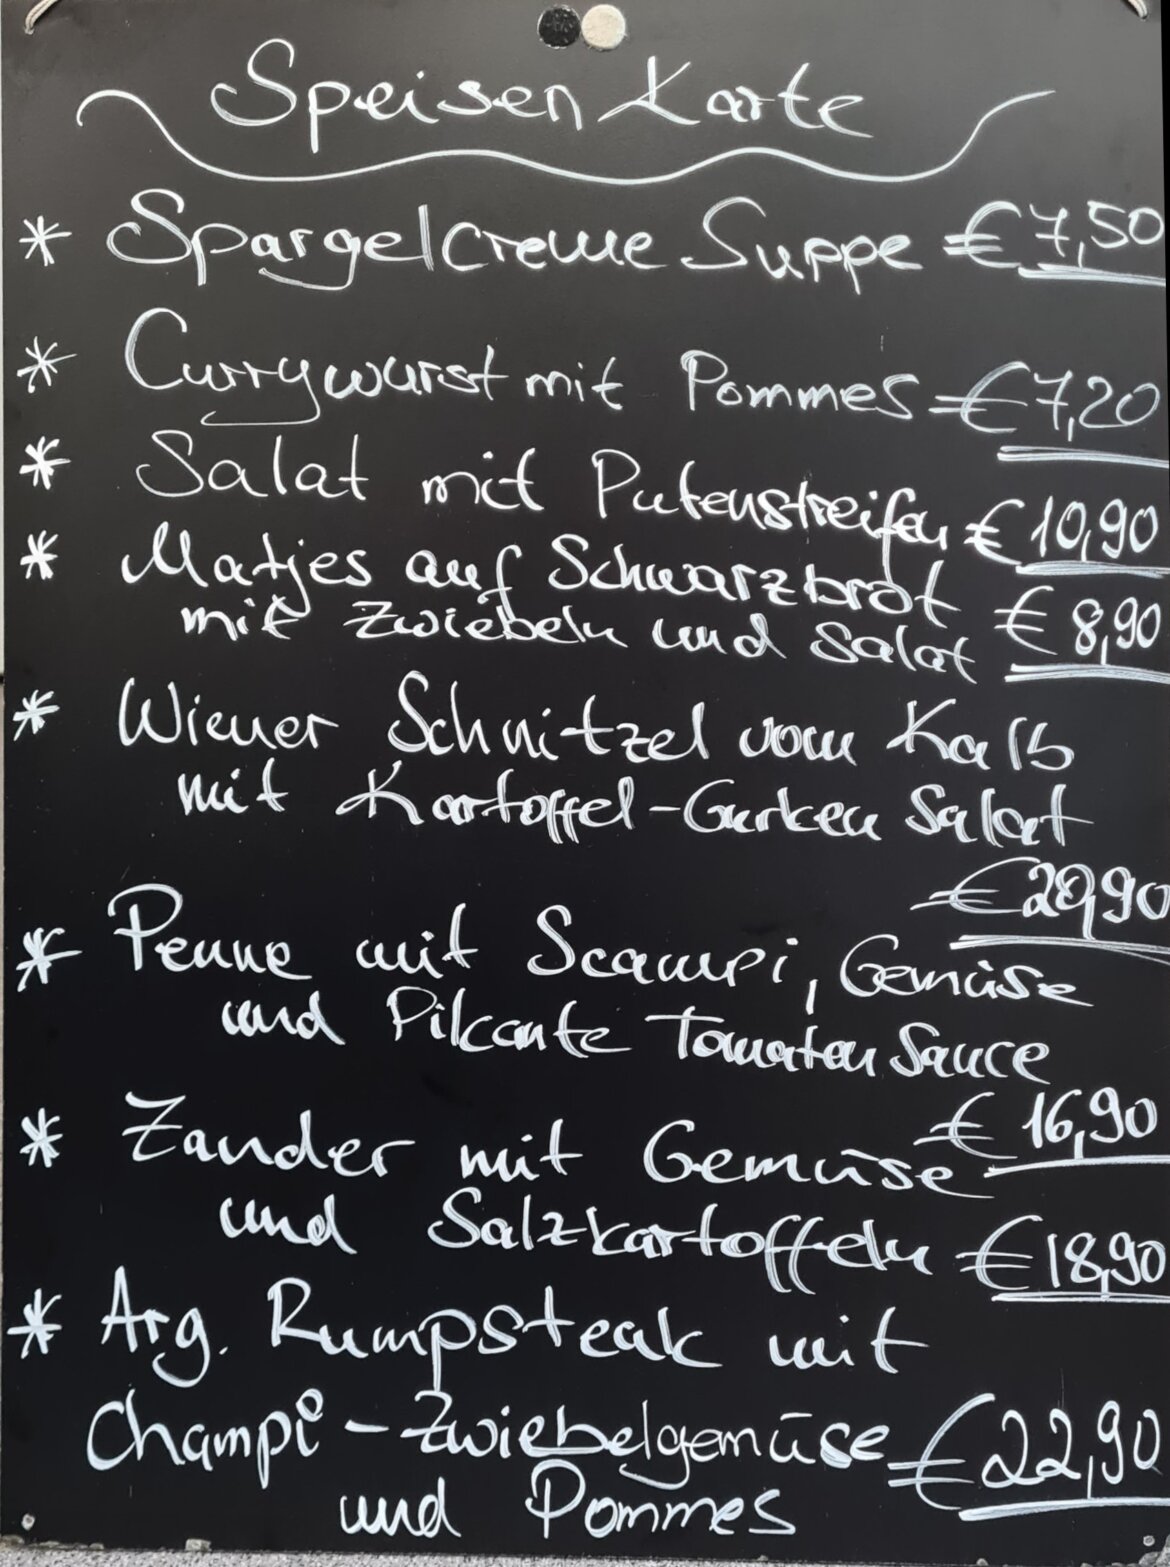 Speisen Karte
* Spargelcreme Suppe € 7,50
* Currywurst mit Pommes € 7,20
* Salat mit Putenstreifen € 10,90
* Matjes auf Schwarzbrot
mit Zwiebeln und Salat € 8,90
* Wiener Schnitzel vom Kalb
mit Kartoffel-Gurken Salat
€ 20,90
* Penne mit Scampi, Gemüse
und Pikante Tomaten Sauce
€ 16,90
* Zander mit Gemüse
und Salzkartoffeln € 18,90
* Arg. Rumpsteak mit
Champi - Zwiebelgemüse € 22,90
und Pommes